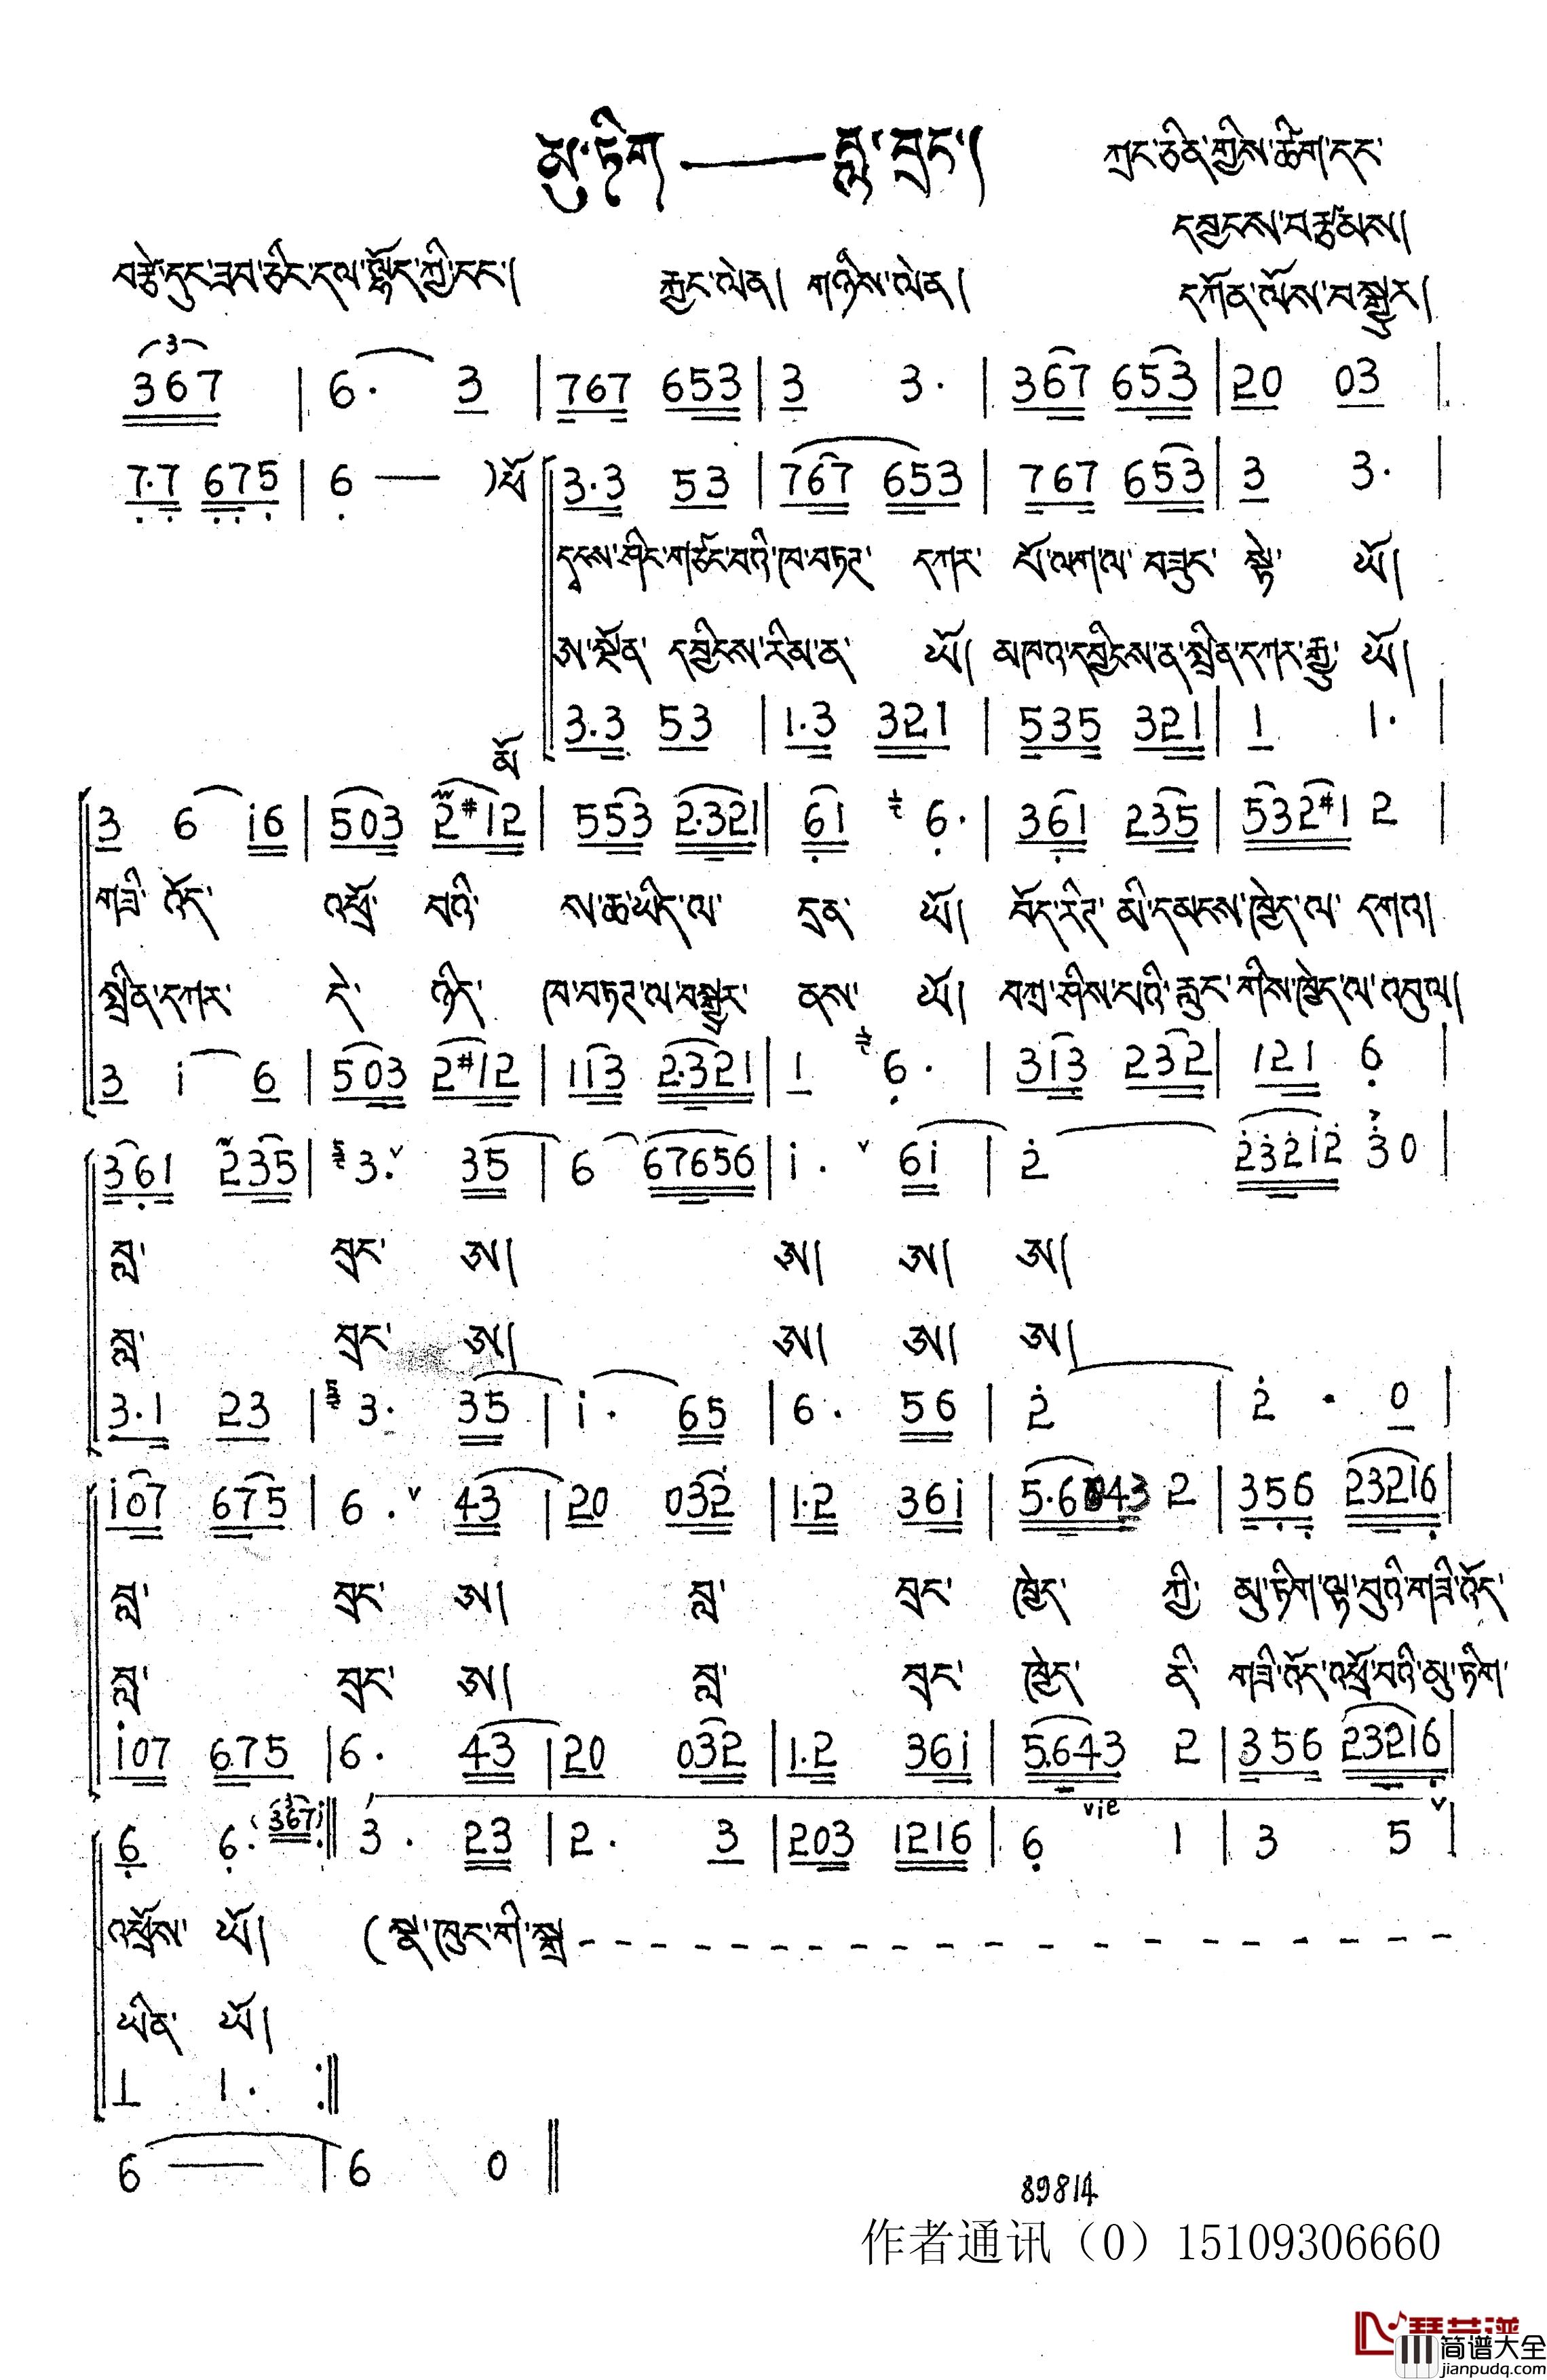 མུ་ཏིག — བླ་བྲང་།
ཀྲང་ཅིན་གྱིས་ཚིག་དང་
དབྱངས་བརྩམས།
བརྩེ་དུང་ཟབ་ཅིང་དལ་ལྷོད་ཀྱི་ངང་། རྐྱང་ལེན། གཉིས་ལེན།
དཀོན་ལོས་བསྒྱུར།
3
3 6 7 | 6· 3 | 767 653 | 3 3· | 367 653 | 20 03 |
7·7 675 | 6 — ) ཕོ 3·3 53 | 767 653 | 767 653 | 3 3· |
དྭངས་ཤིང་གཙང་བའི་ཁ་བཏཊ་ དཀར་ པོ་ལག་ལ་ བཟུང་ སྟེ་ ཡོ།
ཨ་སྔོན་ དབྱིངས་རིམ་ན་ ཡོ། མཁའ་དབྱིངས་ན་སྤྲིན་དཀར་རྒྱུ་ ཡོ།
3·3 53 | 1·3 321 | 535 321 | 1 1· |
མོ
3 6 i6 | 503 2#12 | 553 2·321 | 61 6· | 361 235 | 532#1 2 |
གཟི་ འོད་ འཕྲོ་ བའི་ ས་ཆ་ཡིད་ལ་ དྲན་ ཡོ། བོད་རིཊ་ མི་དམངས་ཁྱེད་ལ་ དགའ།
སྤྲིན་དཀར་ དེ་ ཉིད་ ཁ་བཏཊ་ལ་བསྒྱུར་ ནས་ ཡོ། བཀྲ་ཤིས་པའི་རླུང་གིས་ཁྱེད་ལ་འབུལ།
3 i 6 | 503 2#12 | 113 2·321 | 1 6· | 313 232 | 121 6 |
361 235 | 3· 35 | 6 67656 | i· 6i | 2 23212 30 |
བླ་ བྲང་ ཨ། ཨ། ཨ། ཨ།
བླ་ བྲང་ ཨ། ཨ། ཨ། ཨ།
3·1 23 | 3· 35 | i· 65 | 6· 56 | 2 | 2 · 0 |
i07 675 | 6· 43 | 20 032 | 1·2 36i | 5·643 2 | 356 23216 |
བླ་ བྲང་ ཨ། བླ་ བྲང་ ཁྱེད་ ཀྱི་ མུ་ཏིག་ལྟ་བུའི་གཟི་འོད་
བླ་ བྲང་ ཨ། བླ་ བྲང་ ཁྱེད་ ནི་ གཟི་འོད་འཕྲོ་བའི་མུ་ཏིག་
i07 675 | 6· 43 | 20 032 | 1·2 36i | 5·643 2 | 356 23216 |
6 6· (367) :‖ 3· 23 | 2· 3 | 203 1216 | 6 1 | 3 5 |
vie
འཕྲོས་ ཡོ། (སྣ་ཁུང་གི་སྒྲ - - - - - - - - - - - - - - - -
ཡིན་ ཡོ།
1 1· :‖
6 — | 6 0 ‖
89814
作者通讯（0）15109306660
琴艺谱
简谱大全
jianpudq.com